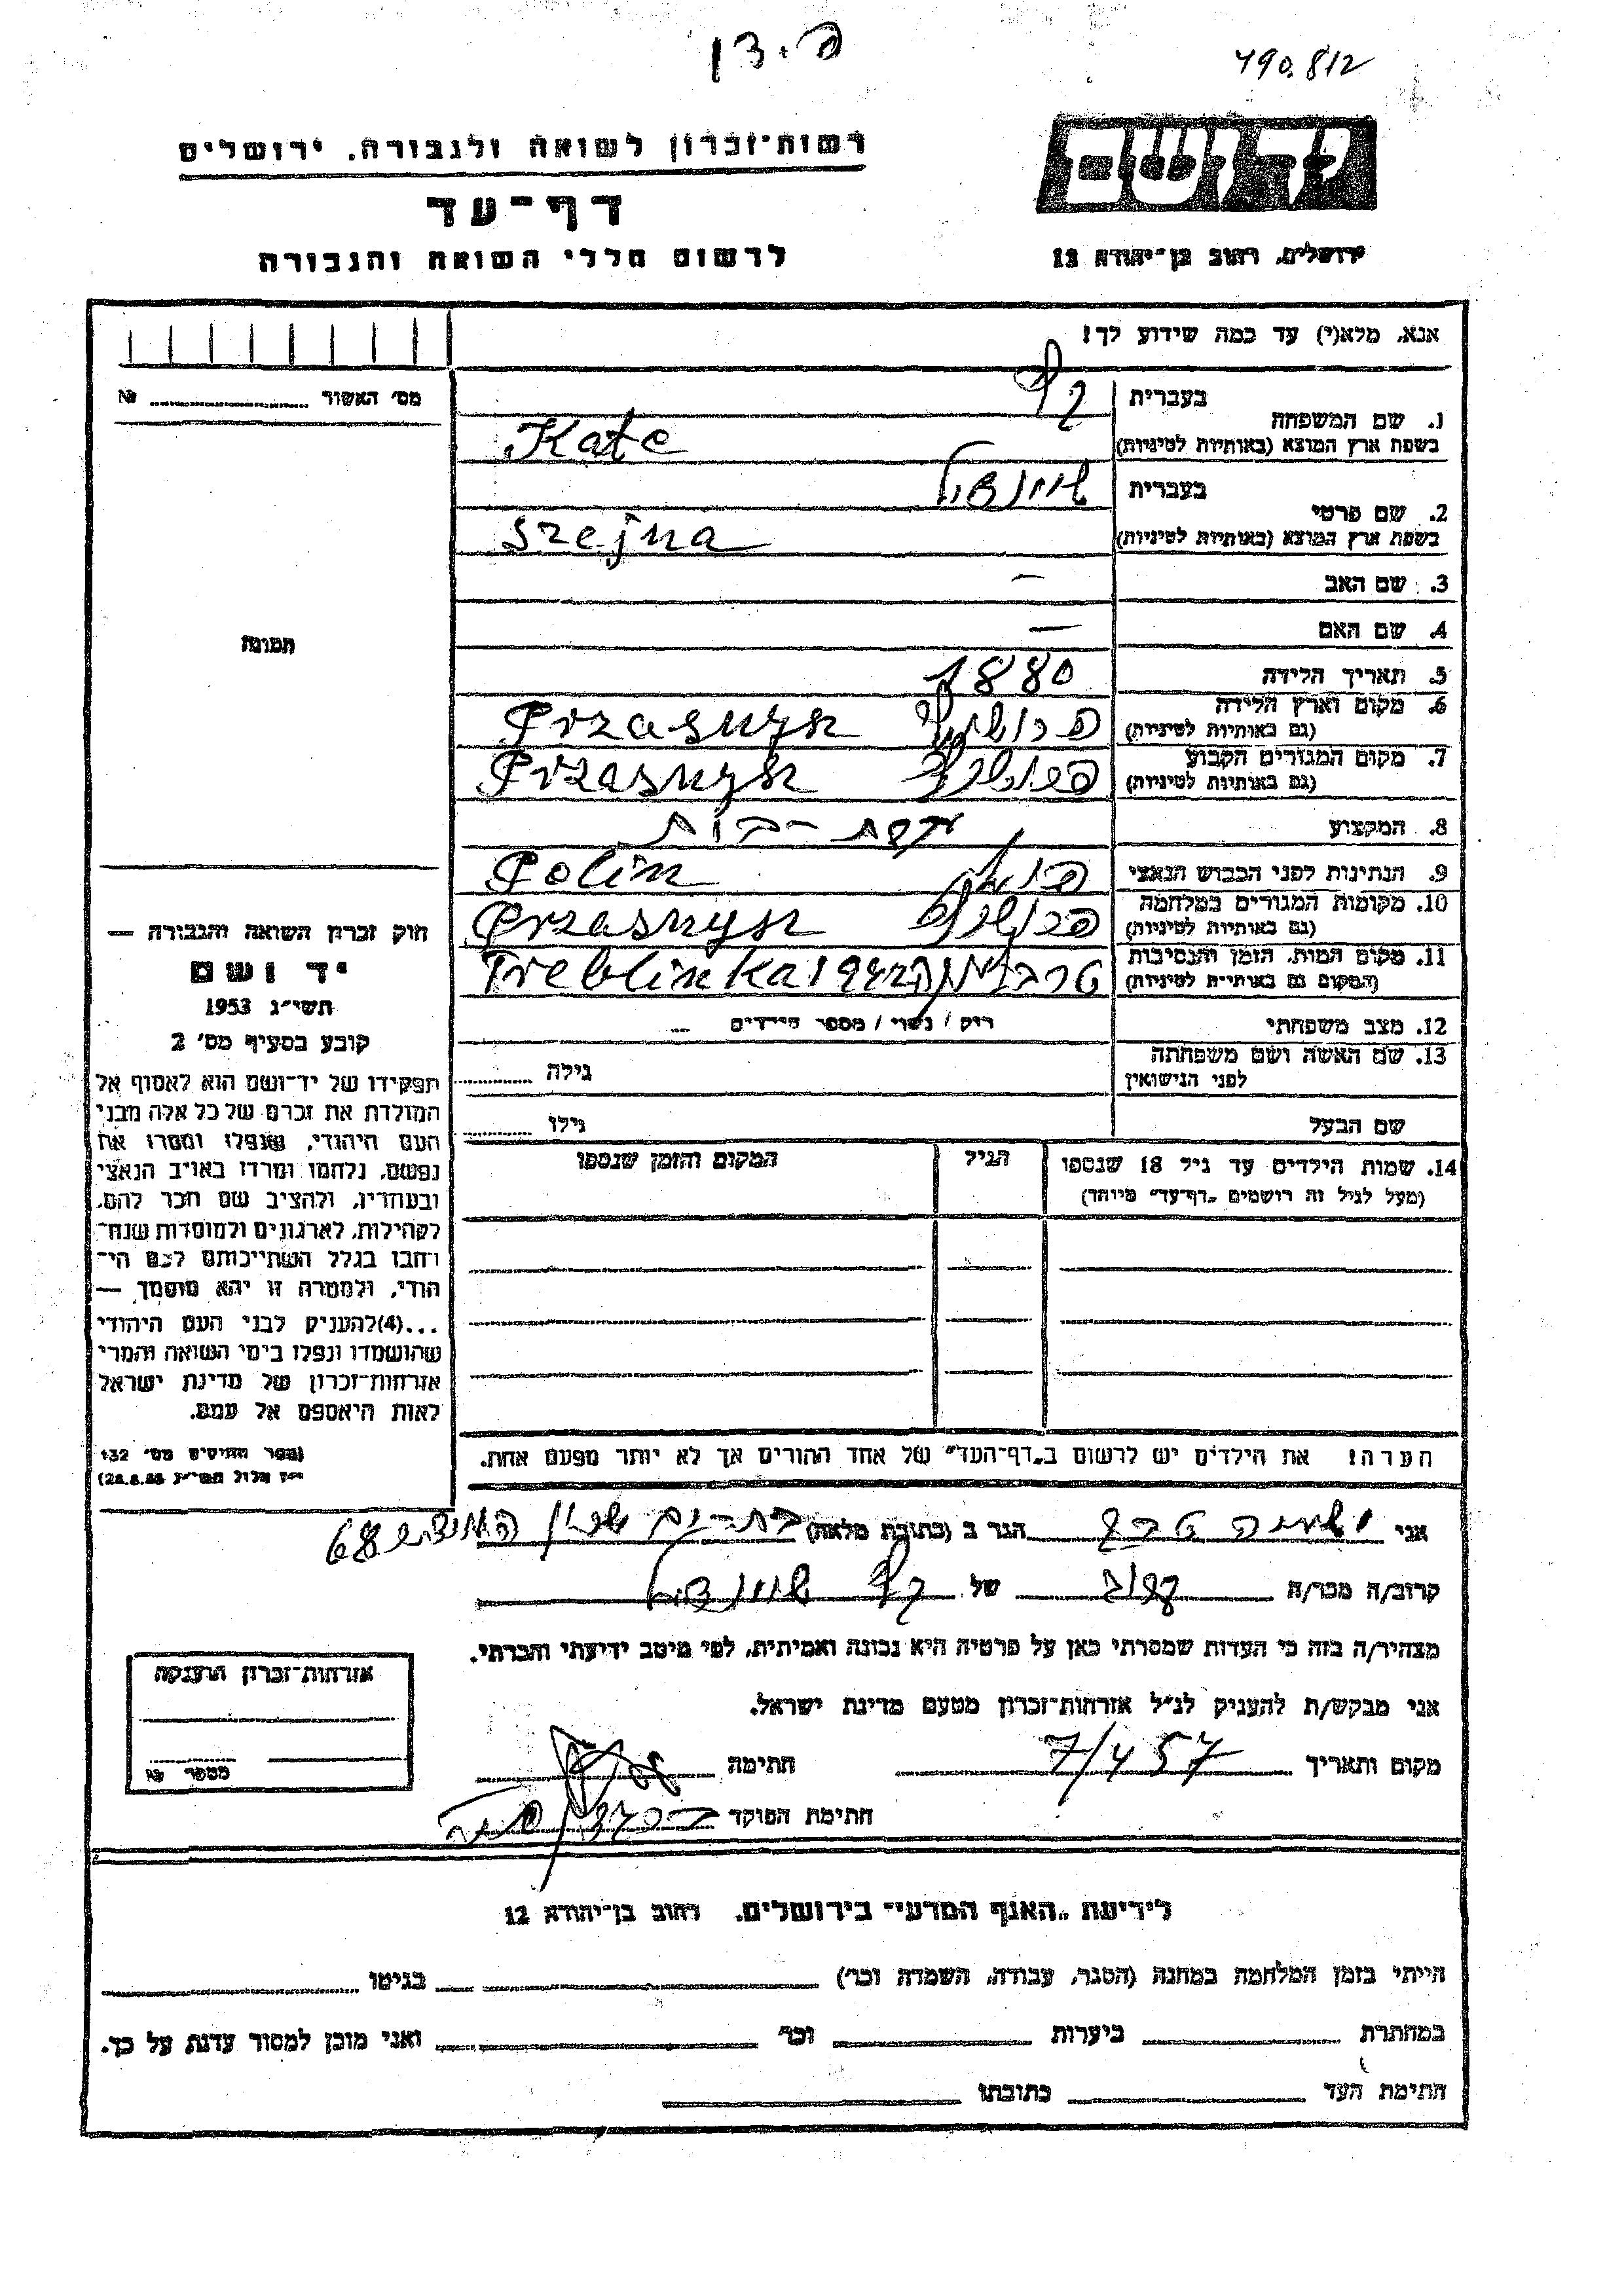 פ. דן
490.812
רשות־זכרון לשואה ולגבורה, ירושלים
יד ושם
דף־עד
לרשום חללי השואה והגבורה
ירושלים, רחוב בן־יהודה 12
אנא, מלא(י) עד כמה שידוע לך!
מס׳ האשור №
1. שם המשפחה
בעברית
בשפת ארץ המוצא (באותיות לטיניות) Kate
2. שם פרטי
בעברית
בשפת ארץ המוצא (באותיות לטיניות) Szejna
3. שם האב —
4. שם האם —
תמונה
5. תאריך הלידה 1880
6. מקום וארץ הלידה
(גם באותיות לטיניות) Przasnysz
7. מקום המגורים הקבוע
(גם באותיות לטיניות) Przasnysz
8. המקצוע עקרת־בית
9. הנתינות לפני הכבוש הנאצי פולין Polin
10. מקומות המגורים במלחמה
(גם באותיות לטיניות) Przasnysz
11. מקום המות, הזמן והנסיבות
(המקום גם באותיות לטיניות) טרבלינקה 1942 Treblinka
12. מצב משפחתי רוק / נשוי / מספר הילדים
13. שם האשה ושם משפחתה
לפני הנישואין גילה
שם הבעל גילו
14. שמות הילדים עד גיל 18 שנספו הגיל המקום והזמן שנספו
(מעל לגיל זה רושמים „דף־עד״ מיוחד)
הערה! את הילדים יש לרשום ב„דף־העד״ של אחד ההורים אך לא יותר מפעם אחת.
חוק זכרון השואה והגבורה —
יד ושם
תשי״ג 1953
קובע בסעיף מס׳ 2
תפקידו של יד־ושם הוא לאסוף אל
המולדת את זכרם של כל אלה מבני
העם היהודי, שנפלו ומסרו את
נפשם, נלחמו ומרדו באויב הנאצי
ובעוזריו, ולהציב שם וזכר להם,
לקהילות, לארגונים ולמוסדות שנח־
רבו בגלל השתייכותם לעם הי־
הודי, ולמטרה זו יהא מוסמך —
...(4)להעניק לבני העם היהודי
שהושמדו ונפלו בימי השואה והמרי
אזרחות־זכרון של מדינת ישראל
לאות היאספם אל עמם.
(ספר החוקים מס׳ 132
י״ז אלול תשי״ג 28.8.53)
אני הגר ב (כתובת מלאה) בת־ים 68
קרוב/ה מכר/ה קרוב של
מצהיר/ה בזה כי העדות שמסרתי כאן על פרטיה היא נכונה ואמיתית, לפי מיטב ידיעתי והכרתי.
אני מבקש/ת להעניק לנ״ל אזרחות־זכרון מטעם מדינת ישראל.
מקום ותאריך 7/4 57 חתימה
חתימת הפוקד
אזרחות־זכרון הוענקה
מספר №
לידיעת „האגף המדעי״ בירושלים, רחוב בן־יהודה 12
הייתי בזמן המלחמה במחנה (הסגר, עבודה, השמדה וכו׳) בגיטו
במחתרת ביערות וכו׳ ואני מוכן למסור עדות על כך.
חתימת העד כתובתו